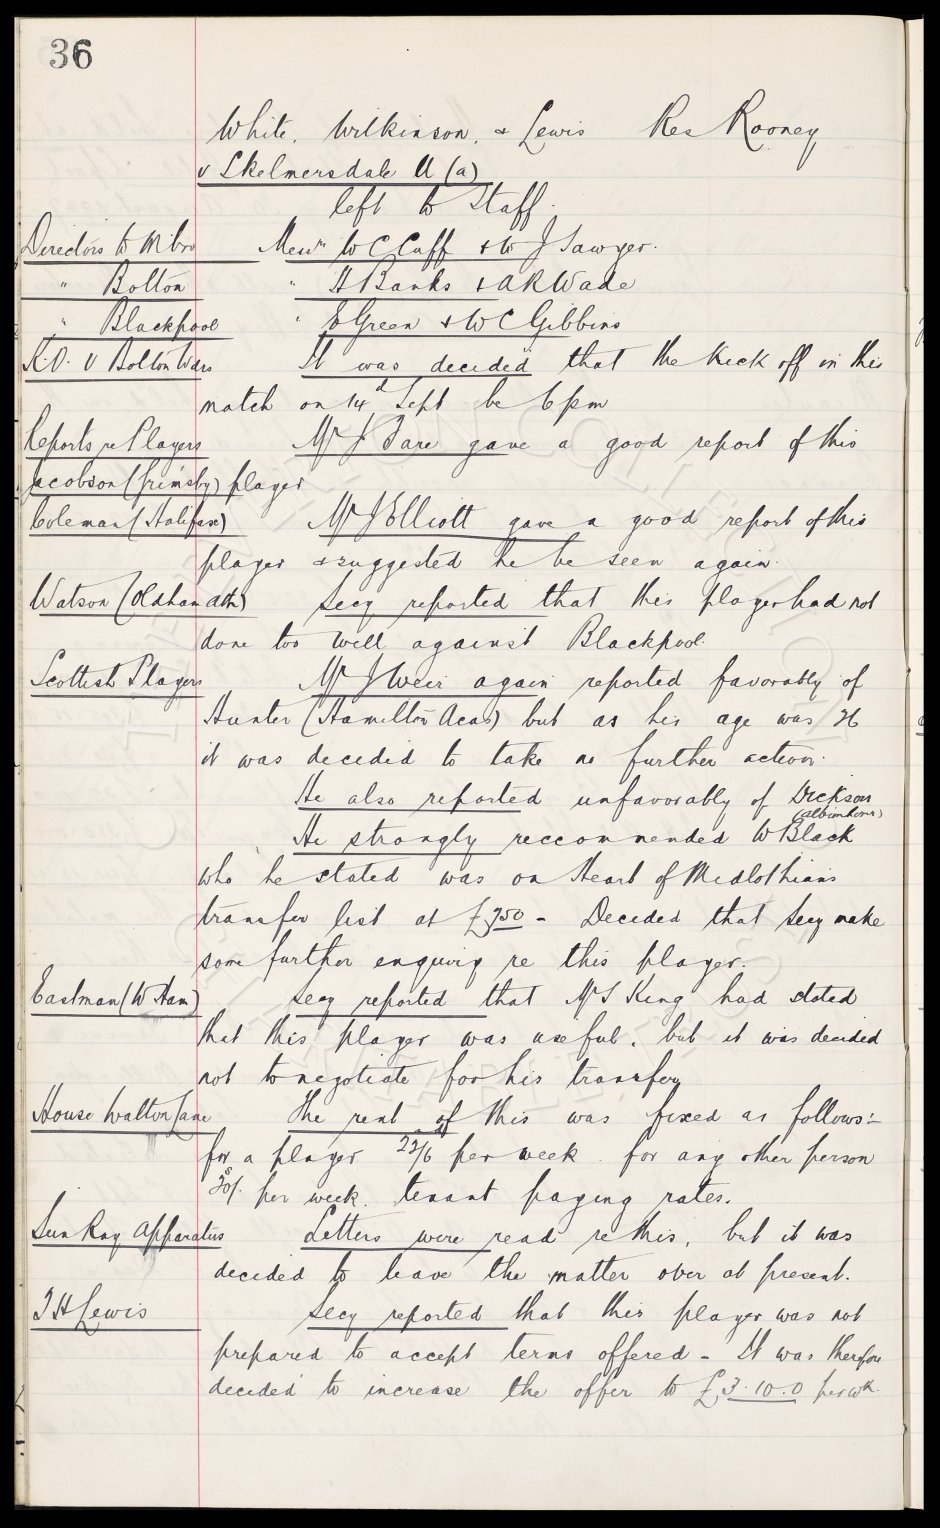 36
White, Wilkinson, & Lewis Res Rooney
v Skelmersdale U (a)
left to Staff.
Directors to M'bro Messrs W C Cuff & W J Sawyer.
" Bolton " H Banks & A R Wade
" Blackpool " E Green & W C Gibbins
K.O. v Bolton Wdrs It was decided that the kick off in this
match on 14th Sept be 6 pm
Reports re Players Mr J Fare gave a good report of this
Jacobson (Grimsby) player
Coleman (Halifax) Mr J Elliott gave a good report of this
player & suggested he be seen again.
Watson (Oldham Ath) Secy reported that this player had not
done too well against Blackpool.
Scottish Players Mr J Weir again reported favorably of
Hunter (Hamilton Acas) but as his age was 26
it was decided to take no further action.
He also reported unfavorably of Dickson
(Albion Rovers)
He strongly reccommended W Black
who he stated was on Heart of Midlothians
transfer list at £750 - Decided that Secy make
some further enquiry re this player.
Eastman (W Ham) Secy reported that Mr S King had stated
that this player was useful, but it was decided
not to negotiate for his transfer
House Walton Lane The rent of this was fixed as follows:-
for a player 22/6 per week. for any other person
30/- per week. tenant paying rates.
Sun Ray Apparatus Letters were read re this, but it was
decided to leave the matter over at present.
T H Lewis Secy reported that this player was not
prepared to accept terms offered - It was therefore
decided to increase the offer to £3.10.0 per wk.